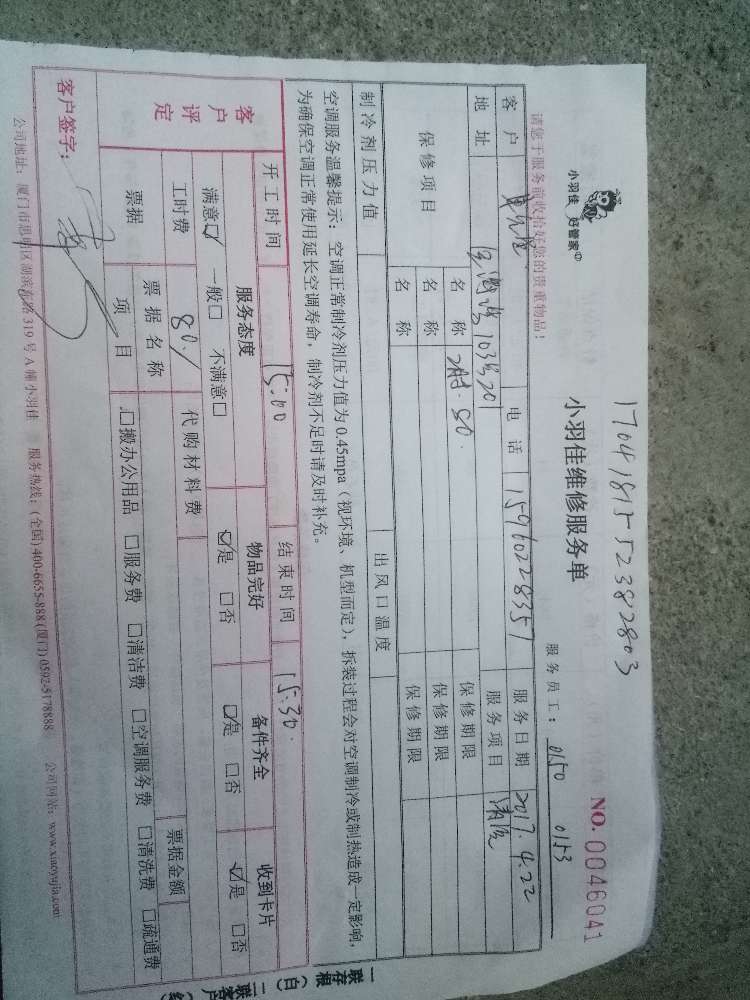 1704181552382803
小羽佳 好管家
小羽佳维修服务单
NO. 0046041
请您于服务前收拾好您的贵重物品!
服务员工: 0150 0153
客户 电话 15960228357 服务日期 2017.4.22
地址 103号201 服务项目
保修项目 名称 保修期限
名称 保修期限
名称 保修期限
制冷剂压力值 出风口温度
空调服务温馨提示:空调正常制冷剂压力值为0.45mpa(视环境、机型而定),拆装过程会对空调制冷或制热造成一定影响,
为确保空调正常使用延长空调寿命,制冷剂不足时请及时补充。
开工时间 15:00 结束时间 15:30
客户评定 服务态度 物品完好 备件齐全 收到卡片
满意☑ 一般□ 不满意□ ☑是 □否 ☑是 □否 ☑是 □否
工时费 80 代购材料费
票据 票据名称 票据金额
项目 □搬办公用品 □服务费 □清洁费 □空调服务费 □清洗费 □疏通费
客户签字:
公司地址:厦门市思明区湖滨南路319号A幢小羽佳 服务热线:(全国)400-6655-888(厦门)0592-5178888 公司网站:www.xiaoyujia.com
一联存根(白)
二联客户